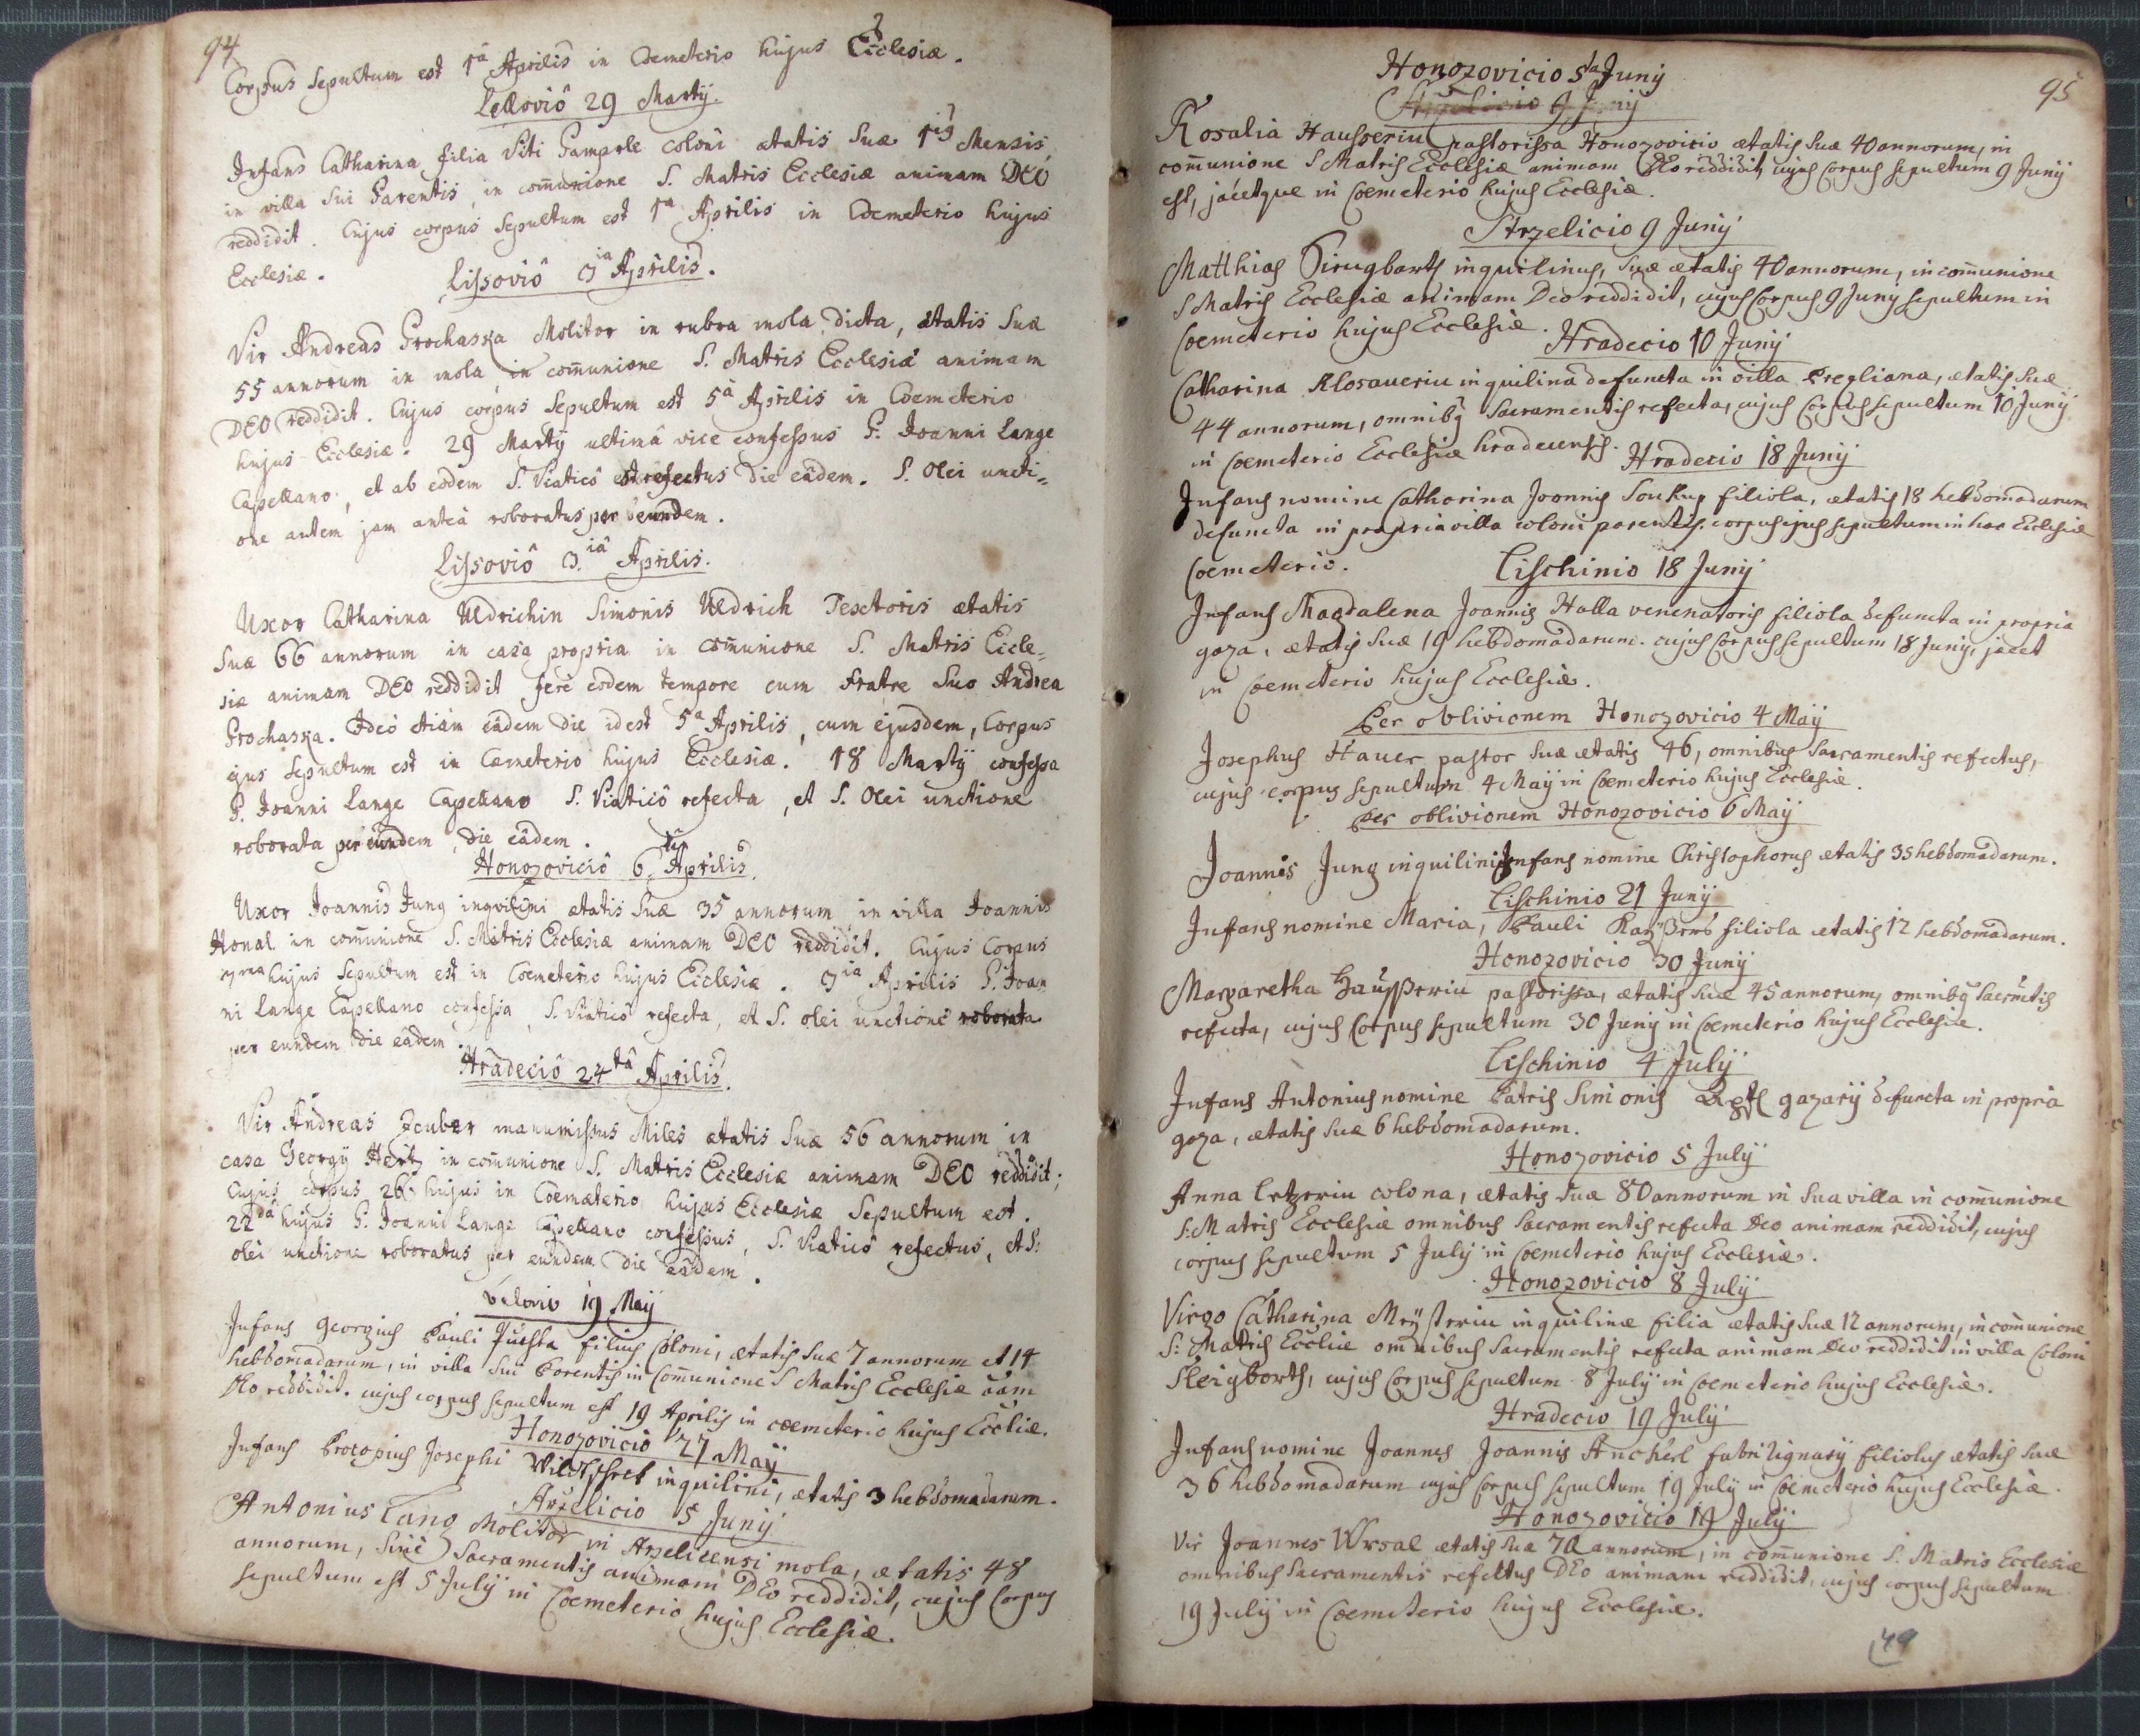 94
Corpus Sepultum est 1â Aprilis in Coemeterio hujus Ecclesiæ.
29 Martÿ.
Infans Catharina filia Viti coloni ætatis Suæ Mensis,
in villa Sui Parentis, in com̃unione S. Matris Ecclesiæ animam DEO
reddidit. Cujus corpus Sepultum est 1a Aprilis in Coemeterio hujus
Ecclesiæ.
Lissoviô 3ia Aprilis.
Vir Andreas Prochaska Molitor in rubra mola dicta, ætatis Suæ
55 annorum in mola, in com̃unione S. Matris Ecclesiæ animam
DEO reddidit. Cujus corpus Sepultum est 5â Aprilis in Coemeterio
hujus Ecclesiæ. 29 Martÿ ultimâ vice confessus P. Joanni Lange
Capellano, et ab eôdem S. Viaticô refectus die eâdem. S. Olei uncti-
one autem jam anteâ roboratus per eundem.
Lissoviô 3.iâ Aprilis.
Uxor Catharina Uldrichin Simonis Uldrich Textoris ætatis
Suæ 66 annorum in casa propria in com̃unione S. Matris Eccle-
siæ animam DEO reddidit ferè eodem tempore cum Fratre Suo Andrea
Prochaska. Ideò etiàm eâdem die id est 5a Aprilis, cum ejusdem, Corpus
ejus Sepultum est in Cæmeterio hujus Ecclesiæ. 18 Martÿ confessa
P. Joanni Lange Capellano S. Viaticô refecta, et S. Olei unctione
roborata per eundem, die eâdem.
Honozoviciô 6. Aprilis.
Uxor Joannis Jung inqvilini ætatis Suæ 35 annorum in villa Joannis
Honal in com̃unione S. Matris Ecclesiæ animam DEO reddidit. Cujus Corpus
hujus Sepultum est in Coemeterio hujus Ecclesiæ. 3ia Aprilis P. Joan
ni Lange Capellano confessa, S. Viaticô refecta, et S. olei unctione roborata
per eundem die eâdem.
Hradeciô 24tâ Aprilis.
Vir Andreas Zeuber manumissus Miles ætatis Suæ 56 annorum in
casa Georgÿ in com̃unione S. Matris Ecclesiæ animam DEO reddidit;
Cujus corpus 26 hujus in Coemæterio hujus Ecclesiæ Sepultum est.
22dâ hujus P. Joanni Lange Capellano confessus, S. Viaticô refectus, et S:
olei unctione roboratus per eundem die eâdem.
19 Maÿ
Infans Georgius Pauli filius Coloni, ætatis suæ 7 annorum et 14
hebdomadarum, in villa sui Parentis in Com̃unione S Matris Ecclesiæ aãm
Deo reddidit. cujus corpus sepultum est 19 Aprilis in coemeterio hujus Eccliæ.
Honozovicio 27 Maÿ
Infans Procopius Josephi inquilini, ætatis 3 hebdomadarum.
Arzelicio 5 Junÿ
Antonius Lang Molitor in Arzelicensi mola, ætatis 48
annorum, sine Sacramentis animam DEo reddidit, cujus Corpus
sepultum est 5 Julÿ in Coemeterio hujus Ecclesiæ.
95
Honozovicio 5ta Junÿ
Rosalia Hausseriu pastorissa Honozovicio ætatis suæ 40 annorum, in
com̃unione S Matris Ecclesiæ animam Deo reddidit, cujus Corpus sepultum 9 Junÿ
est, jacetque in Coemeterio hujus Ecclesiæ.
Strzelicio 9 Junÿ
Matthias inquilinus, suæ ætatis 40 annorum, in com̃unione
S Matris Ecclesiæ animam Deo reddidit, cujus Corpus 9 Junÿ sepultum in
Coemeterio hujus Ecclesiæ.
Hradecio 10 Junÿ
Catharina Klosaueriu inquilina defuncta in villa Pregliana, ætatis suæ
44 annorum, omnibg Sacramentis refecta, cujus Corpus sepultum 10 Junÿ
in Coemeterio Ecclesiæ hradecensis.
Hradecio 18 Junÿ
Infans nomine Catharina Joannis Soukup filiola, ætatis 18 hebdomadarum
defuncta in propria villa coloni parentis. corpus ejus sepultum in hac Ecclesiæ
Coemeterio.
Lischinio 18 Junÿ
Infans Magdalena Joannis Halla venenatoris filiola defuncta in propria
gaza, ætatis suæ 19 hebdomadarum. cujus Corpus sepultum 18 Junÿ, jacet
in Coemeterio hujus Ecclesiæ.
Per oblivionem Honozovicio 4 Maÿ
Josephus Hauer pastor suæ ætatis 46, omnibus Sacramentis refectus,
cujus corpus sepultum 4 Maÿ in Coemeterio hujus Ecclesiæ.
Per oblivionem Honozovicio 6 Maÿ
Joannis Jung inquilini Infans nomine Christophorus ætatis 35 hebdomadarum.
Lischinio 21 Junÿ
Infans nomine Maria, Pauli filiola ætatis 12 hebdomadarum.
Honozovicio 30 Junÿ
Margaretha pastorissa, ætatis suæ 45 annorum, omnibg Sacrmtis
refecta, cujus Corpus sepultum 30 Junÿ in Coemeterio hujus Ecclesiæ.
Lischinio 4 Julÿ
Infans Antonius nomine Patris Simonis gazarÿ defuncta in propria
gaza, ætatis suæ 6 hebdomadarum.
Honozovicio 5 Julÿ
Anna colona, ætatis suæ 80 annorum in sua villa in com̃unione
S. Matris Ecclesiæ omnibus Sacramentis refecta Deo animam reddidit, cujus
corpus sepultum 5 Julÿ in Coemeterio hujus Ecclesiæ.
Honozovicio 8 Julÿ
Virgo Catharina inquilinæ filia ætatis suæ 12 annorum, in com̃unione
S: Matris Eccliæ omnibus Sacramentis refecta animam Deo reddidit in villa Coloni
cujus Corpus sepultum 8 Julÿ in Coemeterio hujus Ecclesiæ.
Hradecio 19 Julÿ
Infans nomine Joannes Joannis Ancherl fabri lignarÿ filiolus ætatis suæ
36 hebdomadarum cujus corpus sepultum 19 Julÿ in Coemeterio hujus Ecclesiæ.
Honozovicio 19 Julÿ
Vir Joannes Wrsal ætatis suæ annorum, in com̃unione S. Matris Ecclesiæ
omnibus Sacramentis refectus DEo animam reddidit, cujus corpus sepultum
19 Julÿ in Coemeterio hujus Ecclesiæ.
49